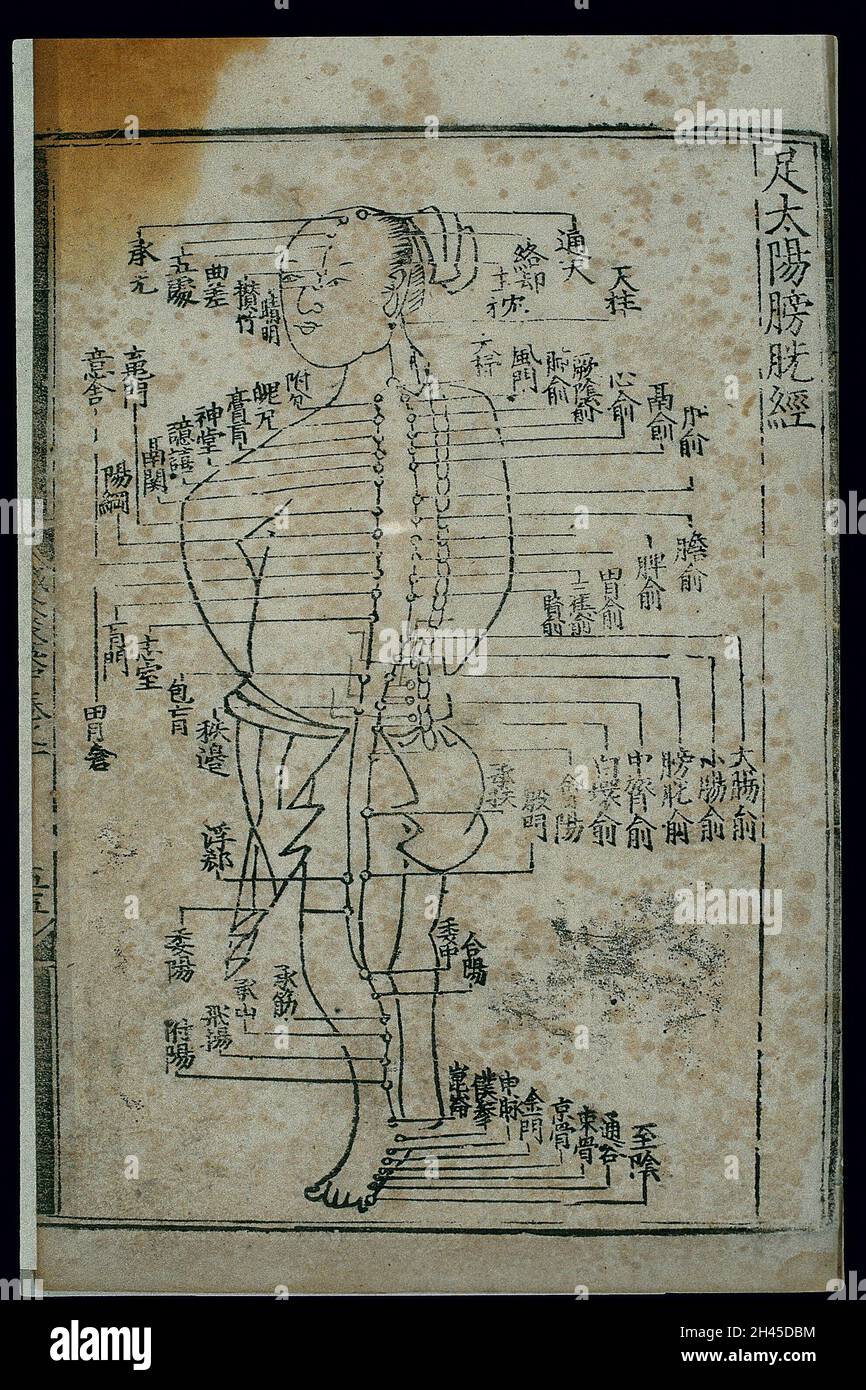 足太陽膀胱經
通天
絡却
玉枕
天柱
承光
五處
曲差
攢竹
睛明
大杼
風門
肺俞
厥陰俞
心俞
鬲俞
肝俞
附分
魄戶
膏肓
神堂
譩譆
鬲関
魂門
意舍
陽綱
膽俞
脾俞
胃俞
三焦俞
腎俞
肓門
志室
包肓
秩邊
胃倉
大腸俞
小腸俞
膀胱俞
中膂俞
白環俞
會陽
承扶
殷門
浮郄
委陽
委中
合陽
承筋
承山
飛揚
附陽
崑崙
僕參
申脉
金門
京骨
束骨
通谷
至陰
alamy
Image ID: 2H45DBM
www.alamy.com